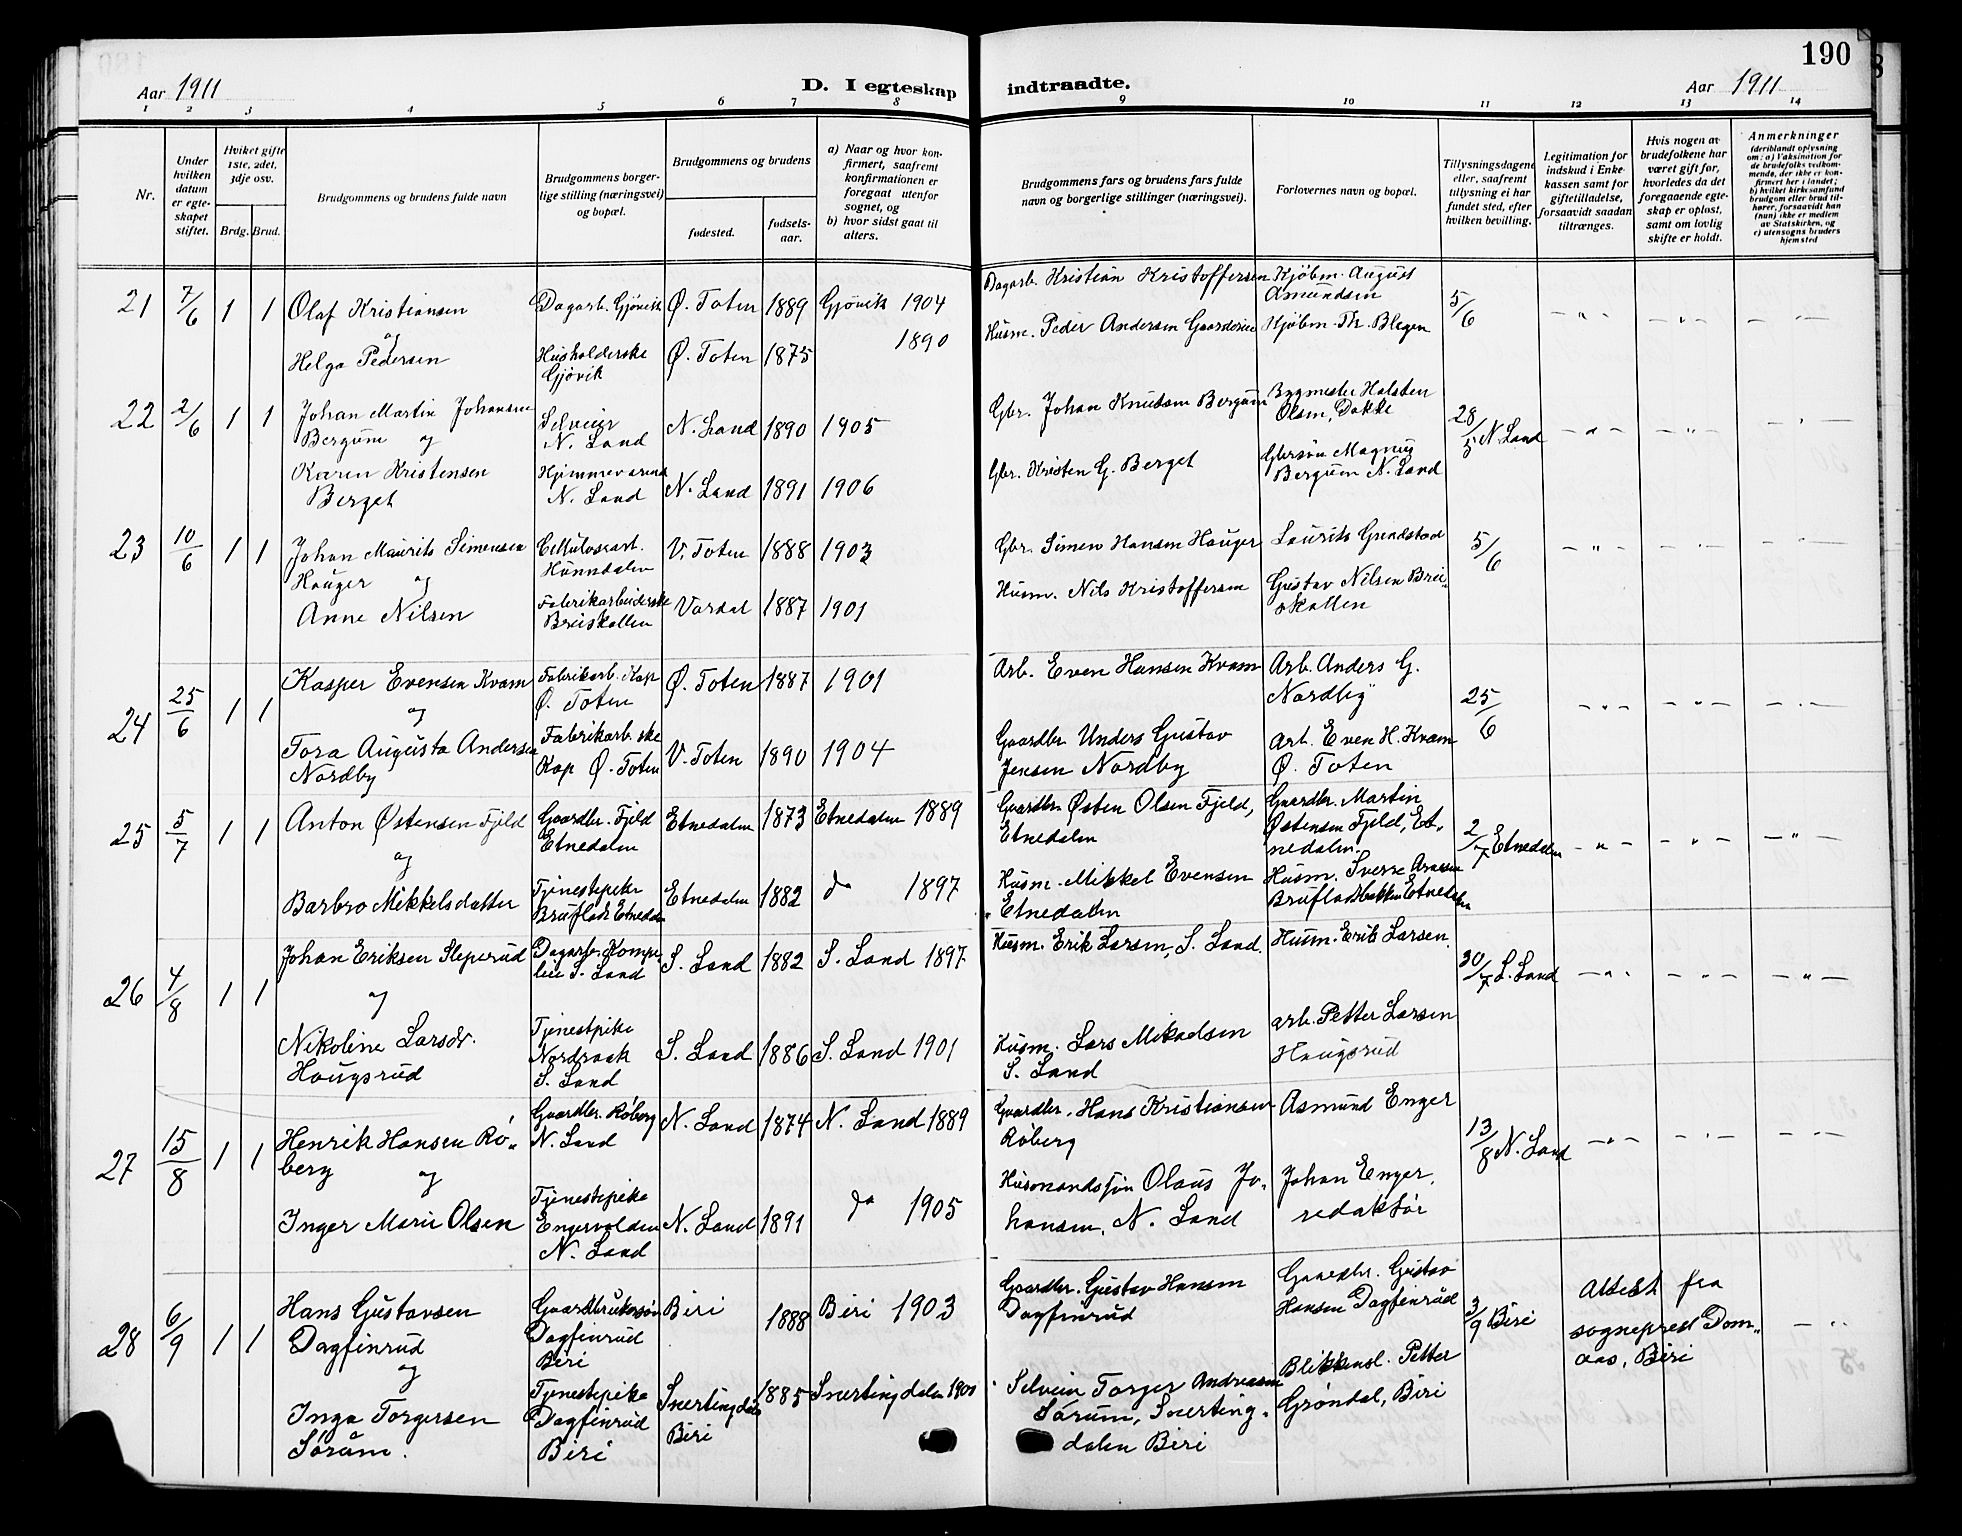 190
Aar 1911
D. I egteskap
indtraadte.
Aar 1911
1 2 3 4 5 6 7 8 9 10 11 12 13 14
Nr.
Under hvilken datum er egteskapet stiftet.
Hviket gifte 1ste, 2det, 3dje osv.
Brdg. Brud.
Brudgommens og brudens fulde navn
Brudgommens borgerlige stilling (næringsvei) og bopæl.
Brudgommens og brudens
fødested.
fødselsaar.
a) Naar og hvor konfirmert, saafremt konfirmationen er foregaat utenfor sognet, og
b) hvor sidst gaat til alters.
Brudgommens fars og brudens fars fulde navn og borgerlige stillinger (næringsvei).
Forlovernes navn og bopæl.
Tillysningsdagene eller, saafremt tillysning ei har fundet sted, efter hvilken bevilling.
Legitimation for indskud i Enkekassen samt for giftetilladelse, forsaavidt saadan tiltrænges.
Hvis nogen av brudefolkene har været gift før, hvorledes da det foregaaende egteskap er opløst, samt om lovlig skifte er holdt.
Anmerkninger
(deriblandt oplysning om: a) Vaksination for de brudefolks vedkommende, der ikke er konfirmert her i landet; b) hvilket kirkesamfund brudgom eller brud tilhører, forsaavidt han (hun) ikke er medlem av Statskirken, og c) utensogns bruders hjemsted
21 7/6 1 1 Olaf Kristiansen Dagarb. Gjøvik Ø. Toten 1889 Gjøvik 1904 Dagarb. Kristian Kristoffersen Kjøbm. August Amundsen 5/6 - " - - " - - " -
og
Helga Pedersen Husholderske Gjøvik Ø. Toten 1875 1890 Husm. Peder Andersen Kjøbm. Th. Blegen
22 2/6 1 1 Johan Martin Johansen Bergum og Selveier N. Land N. Land 1890 1905 Gbr. Johan Knudsen Bergum Bygmester Halsten Olsen, Dokka 28/5 N. Land - " - - " - - " -
Karen Kristensen Berget Hjemmeværende N. Land N. Land 1891 1906 Gbr. Kristen G. Berget Gbrsøn Magnus Bergum N. Land
23 10/6 1 1 Johan Maurits Simensen Hauger og Cellulosearb. Hunndalen V. Toten 1888 1903 Gbr. Simen Hansen Hauger Laurits Grindstad 5/6 - " - - " - - " -
Anne Nilsen Fabrikarbeiderske Breiskallen Vardal 1887 1901 Husm. Nils Kristoffersen Gustav Nilsen Breiskallen
24 25/6 1 1 Kasper Evensen Kvam Fabrikarb. Kap Ø. Toten Ø. Toten 1887 1901 Arb. Even Hansen Kvam Arb. Anders G. Nordby 25/6 - " - - " - - " -
og
Tora Augusta Andersen Nordby Fabrikarb.ske Kap Ø. Toten V. Toten 1890 1904 Gaardbr. Anders Gustav Jensen Nordby Arb. Even H. Kvam Ø. Toten
25 5/7 1 1 Anton Østensen Fjeld Gaardbr. Fjeld Etnedalen Etnedalen 1873 Etnedalen 1889 Gaardbr. Østen Olsen Fjeld, Etnedalen Gaardbr. Martin Østensen Fjeld, Etnedalen. 2/7 Etnedalen - " - - " - - " -
og
Barbro Mikkelsdatter Tjenestepike Bruflat Etnedalen Etnedalen 1882 do 1897 Husm. Mikkel Evensen Etnedalen Husm. Sverre Bruflatbakken Etnedalen
26 4/8 1 1 Johan Eriksen Sleperud Dagarb. S. Land S. Land 1882 S. Land 1897 Husm. Erik Larsen, S. Land. Husm. Erik Larsen. 30/7 S. Land - " - - " - - " -
og
Nikoline Larsdr. Haugsrud Tjenestepike Nordraak S. Land S. Land 1886 S. Land 1901 Husm. Lars Mikaelsen S. Land arb. Petter Larsen Haugsrud
27 15/8 1 1 Henrik Hansen Røberg og Gaardbr. Røberg N. Land N. Land 1874 N. Land 1889 Gaardbr. Hans Kristiansen Røberg Asmund Enger 13/8 N. Land - " - - " - - " -
Inger Marie Olsen Tjenestepike Engervolden N. Land N. Land 1891 do 1905 Husmandssøn Olaus Johansen, N. Land Johan Enger, redaktør
28 6/9 1 1 Hans Gustavsen Dagfinrud Gaardbrukersøn Dagfinrud Biri Biri 1888 Biri 1903 Gaardbr. Gustav Hansen Dagfinrud Gaardbr. Gustav Hansen Dagfinrud 3/9 Biri Attest fra sogneprest Domaas, Biri - "
og
Inga Torgersen Sørum. Tjenestepike Dagfinrud Biri Snertingdalen Biri 1885 Snertingdalen 1900 Selveier Torger Andreassen Sørum, Snertingdalen Biri Blikkensl. Petter Grøndal, Biri